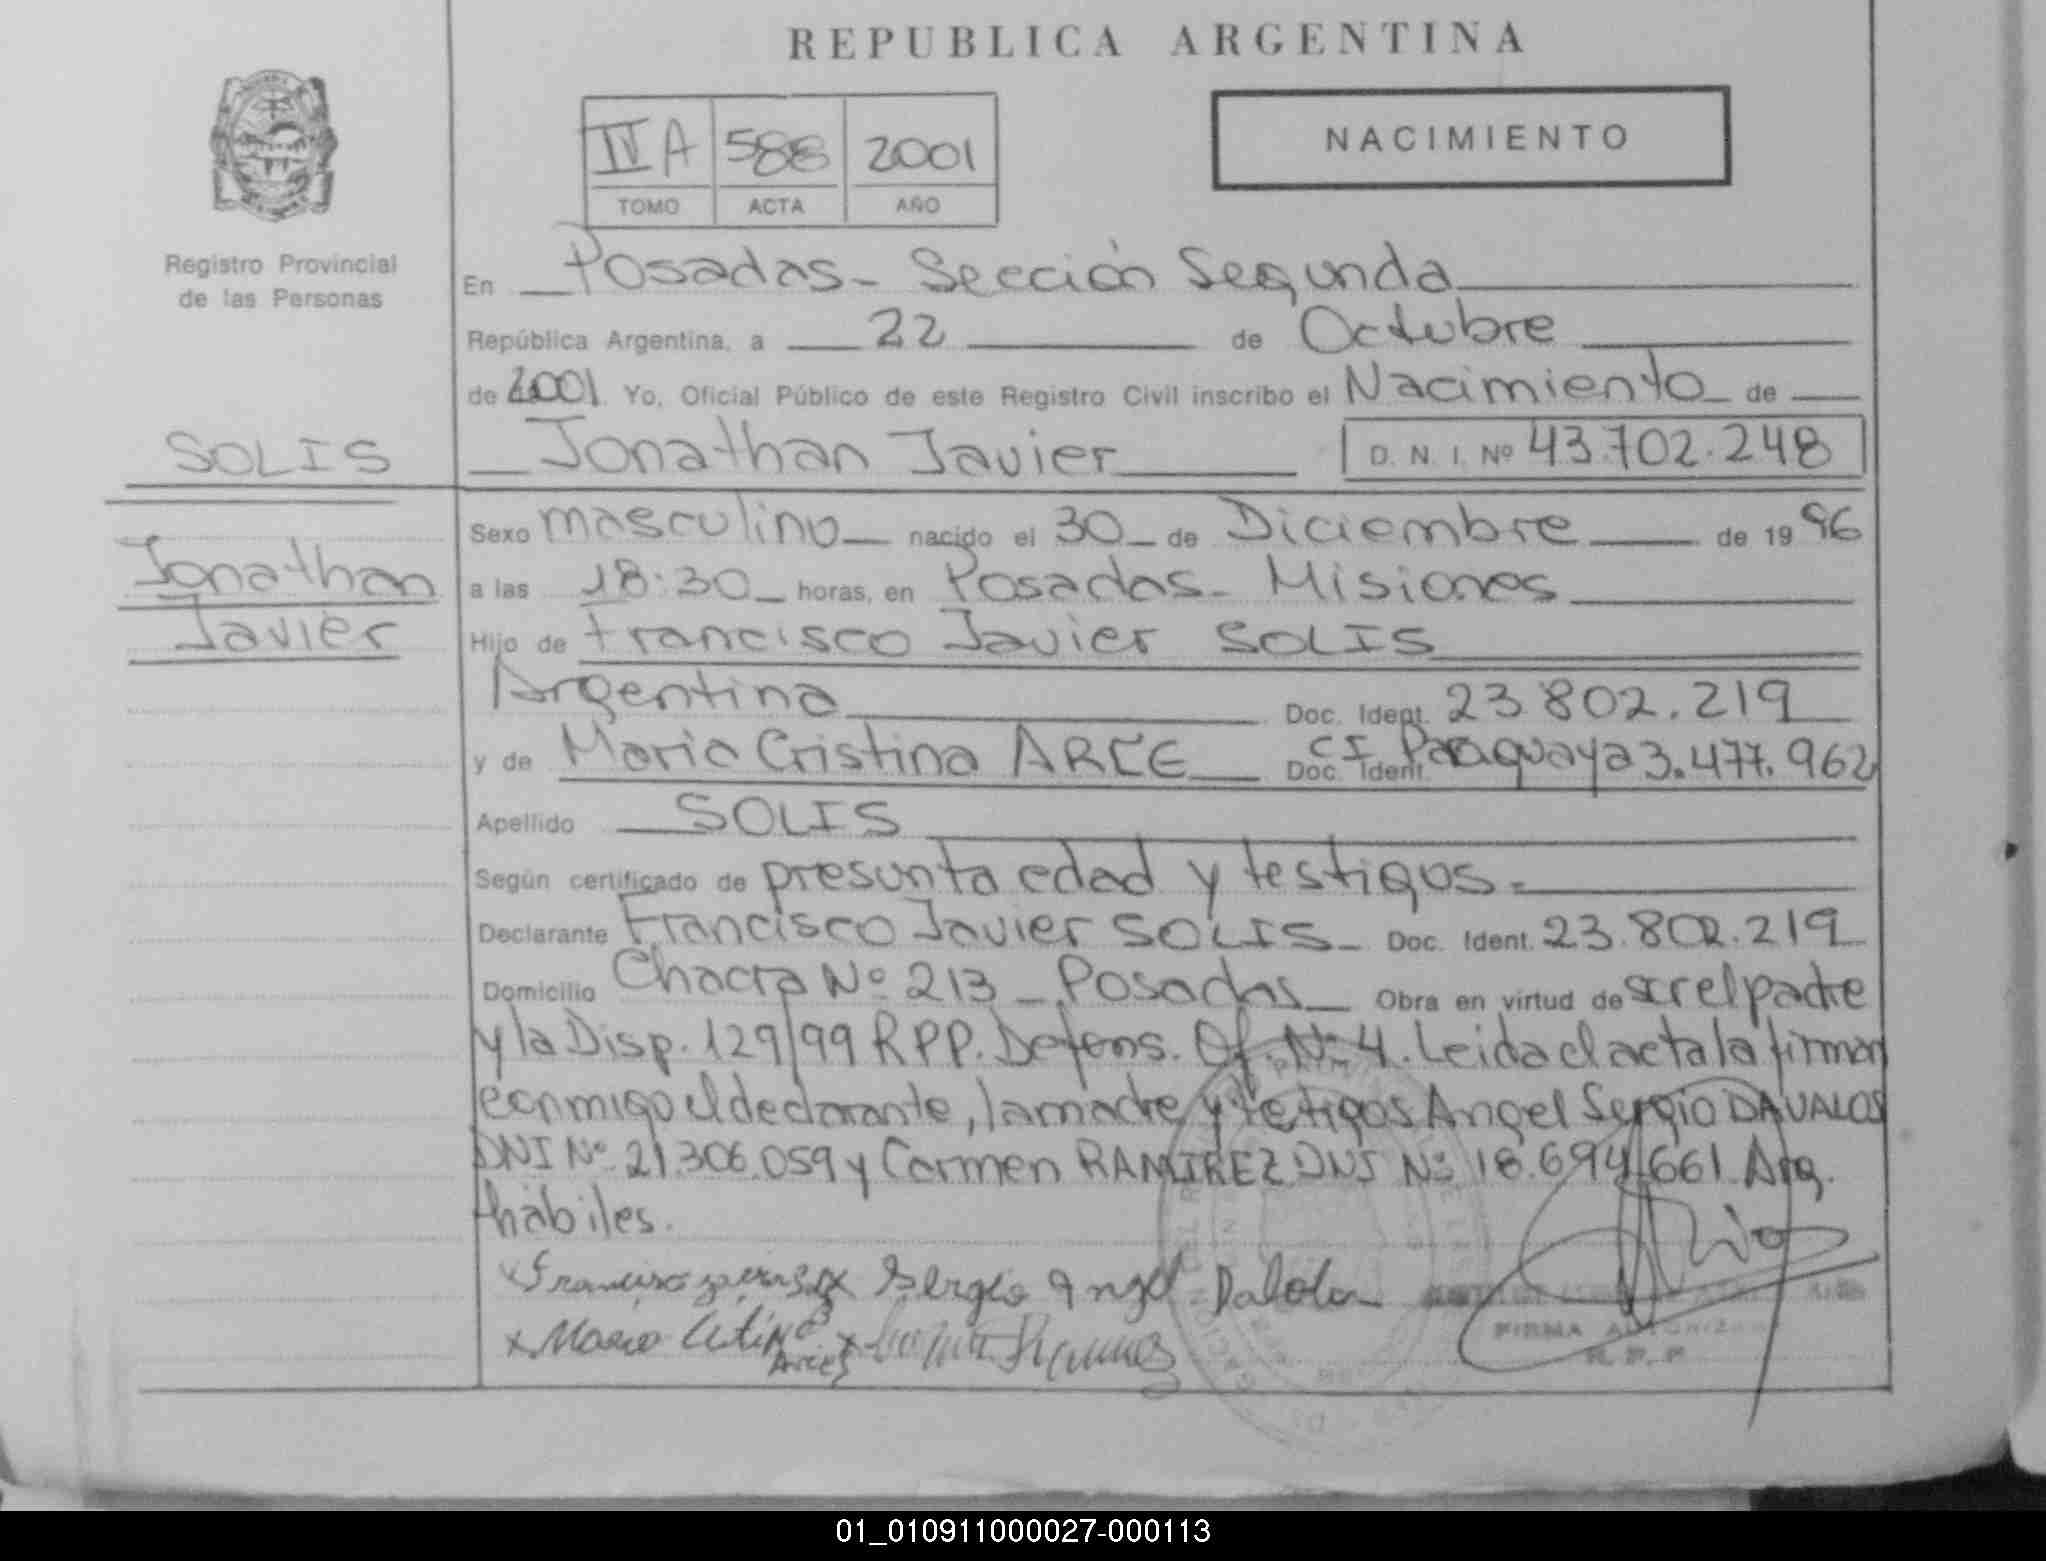 REPUBLICA ARGENTINA
IV A 588 2001
TOMO ACTA AÑO
NACIMIENTO
Registro Provincial
de las Personas
En Posadas - Sección Segunda
República Argentina, a 22 de Octubre
de 2001. Yo, Oficial Público de este Registro Civil inscribo el Nacimiento de
SOLIS
Jonathan Javier D. N. I. Nº 43.702.248
Jonathan
Javier
Sexo masculino nacido el 30 de Diciembre de 1996
a las 18:30 horas, en Posadas - Misiones
Hijo de Francisco Javier SOLIS
Argentina Doc. Ident. 23.802.219
y de Maria Cristina ARCE Doc. Ident. CI Paraguaya 3.477.962
Apellido SOLIS
Según certificado de presunta edad y testigos.
Declarante Francisco Javier SOLIS Doc. Ident. 23.802.219
Domicilio Chacra Nº 213 - Posadas Obra en virtud de ser el padre
y la Disp. 129/99 RPP. Defens. Of. Nº 4. Leida el acta la firman
conmigo el declarante, la madre y tetigos Angel Sergio DAVALOS
DNI Nº 21.306.059 y Carmen RAMIREZ DNI Nº 18.694.661 Arg.
hábiles.
Sergio Angel
FIRMA AUTORIZADA
R. P. P.
01_010911000027-000113